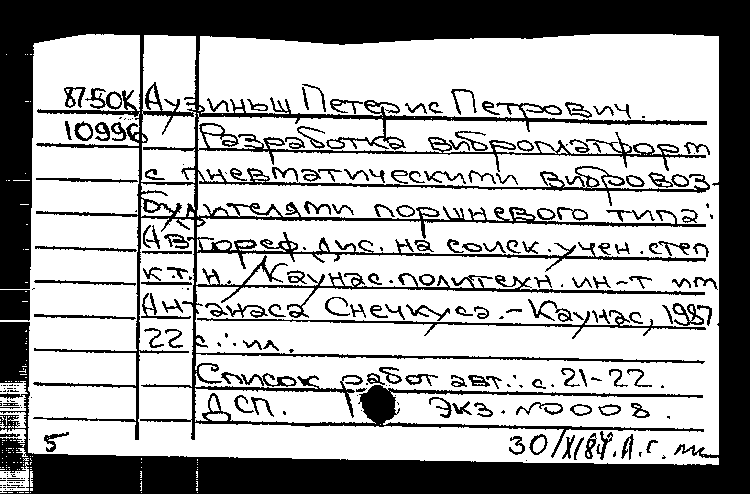 87-50К Аузиньш, Петерис Петрович.
10996 Разработка виброплатформ
с пневматическими вибровоз-
будителями поршневого типа:
Автореф. дис. на соиск. учен. степ
к.т.н. / Каунас. политехн. ин-т им
Антанаса Снечкуса. - Каунас, 1987.
22 с.: ил.
Список работ авт.: с. 21-22.
ДСП. Экз. N0008.
5 30/XI87.